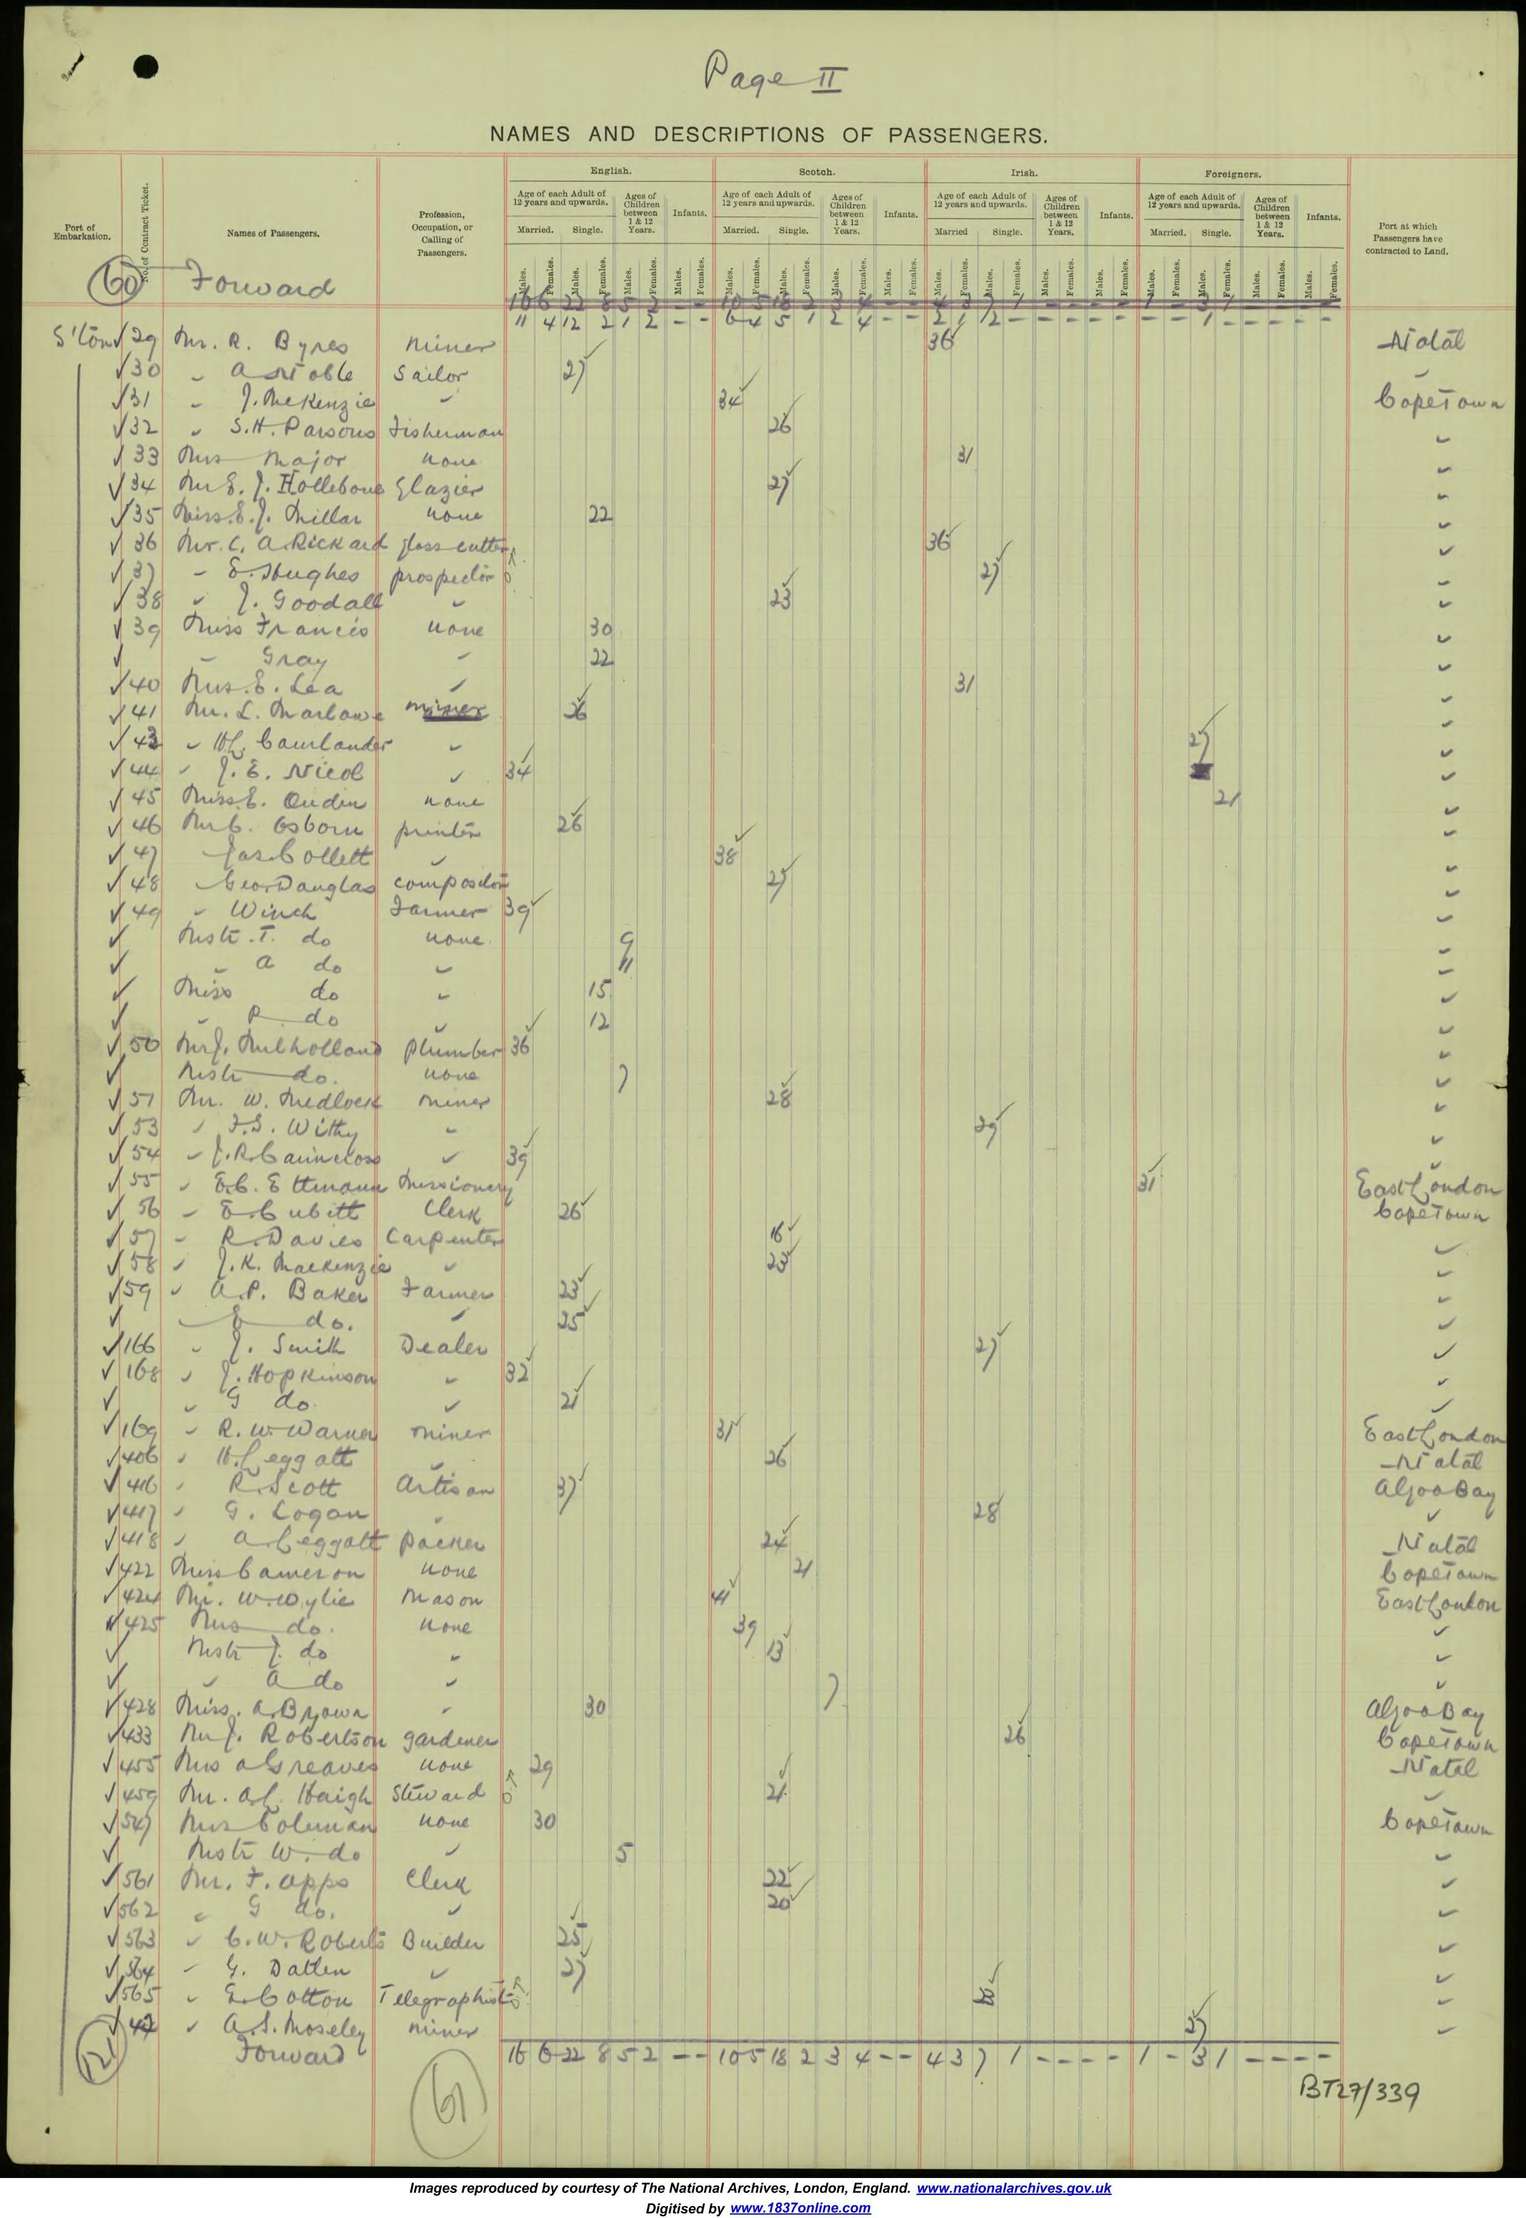 Page II
NAMES AND DESCRIPTIONS OF PASSENGERS.
English. Scotch. Irish. Foreigners.
Port of Embarkation. No. of Contract Ticket. Names of Passengers. Profession, Occupation, or Calling of Passengers. Age of each Adult of 12 years and upwards. Ages of Children between 1 & 12 Years. Infants. Age of each Adult of 12 years and upwards. Ages of Children between 1 & 12 Years. Infants. Age of each Adult of 12 years and upwards. Ages of Children between 1 & 12 Years. Infants. Age of each Adult of 12 years and upwards. Ages of Children between 1 & 12 Years. Infants. Port at which Passengers have contracted to Land.
Married. Single. Married. Single. Married Single. Married. Single.
Males. Females. Males. Females. Males. Females. Males. Females. Males. Females. Males. Females. Males. Females. Males. Females. Males. Females. Males. Females. Males. Females. Males. Females. Males. Females. Males. Females. Males. Females. Males. Females.
60 Forward
16 6 22 8 5 2 - - 10 5 18 2 3 4 - - 4 3 7 1 - - - - 1 - 3 1 - - - -
11 4 12 2 1 2 - - 6 4 5 1 2 4 - - 2 1 2 - - - - - - - 1 - - - - -
S'ton 29 Mr. R. Byres miner 36 Natal
30 " A Noble Sailor 27 "
31 " J. McKenzie " 34 CapeTown
32 " S.H. Parsons Fisherman 26 "
33 Mrs Major none 31 "
34 Mr E. J. Hollebone Glazier 27 "
35 Miss E. J. Millar none 22 "
36 Mr. C. A. Rickard glass cutter 36 "
37 " E. Hughes prospector 27 "
38 " J. Goodall " 23 "
39 Miss Francis none 30 "
" Gray " 22 "
40 Mrs. E. Lea " 31 "
41 Mr. L. Marlowe miner 26 "
43 " H. Courlander " 27 "
44 " J. E. Nicol " 34 "
45 Miss E. Oudin none 21 "
46 Mr C. Osborn printer 26 "
47 Jas. Collett " 38 "
48 " Geo. Douglas compositor 27 "
49 " Winch Farmer 39 "
Mstr. T. do none 9 "
" A do " 11 "
Miss do " 15 "
" R do " 12 "
50 Mr J. Mulholland plumber 36 "
Mstr do. none 7 "
51 Mr. W. Medlock miner 28 "
53 " F.S. Withy " 29 "
54 " J.R. Cairncross " 39 "
55 " E.C. Ettmann Missionery 31 East London
56 " E. Cubitt Clerk 26 CapeTown
57 " R. Davies Carpenter 16 "
58 " J.K. Mackenzie " 23 "
59 " A.P. Baker Farmer 23 "
" E do. " 25 "
166 " J. Smith Dealer 27 "
168 " J. Hopkinson " 32 "
" G do. " 21 "
169 " R. W. Warner miner 31 East London
406 " H. Leggatt " 26 Natal
416 " R. Scott Artisan 37 Algoa Bay
417 " G. Logan " 28 "
418 " A Leggatt packer 24 Natal
422 Miss Cameron none 21 CapeTown
424 Mr. W. Wylie Mason 41 East London
425 Mrs do. none 39 "
Mstr J. do " 13 "
" A do " 7 "
428 Miss. A. Brown " 30 Algoa Bay
433 Mr J. Robertson gardener 26 CapeTown
455 Mrs A Greaves none 29 Natal
459 Mr. A.L. Haigh Steward 21 "
547 Mrs Coleman none 30 CapeTown
Mstr W. do " 5 "
561 Mr. F. Apps Clerk 22 "
562 " G do. " 20 "
563 " C. W. Roberts Builder 25 "
564 " G. Datlen " 27 "
565 " E. Cotton Telegraphist "
42 " A. S. Moseley miner 27 "
121 Forward 16 6 22 8 5 2 - - 10 5 18 2 3 4 - - 4 3 7 1 - - - - 1 - 3 1 - - - -
61
BT27/339
Images reproduced by courtesy of The National Archives, London, England. www.nationalarchives.gov.uk
Digitised by www.1837online.com